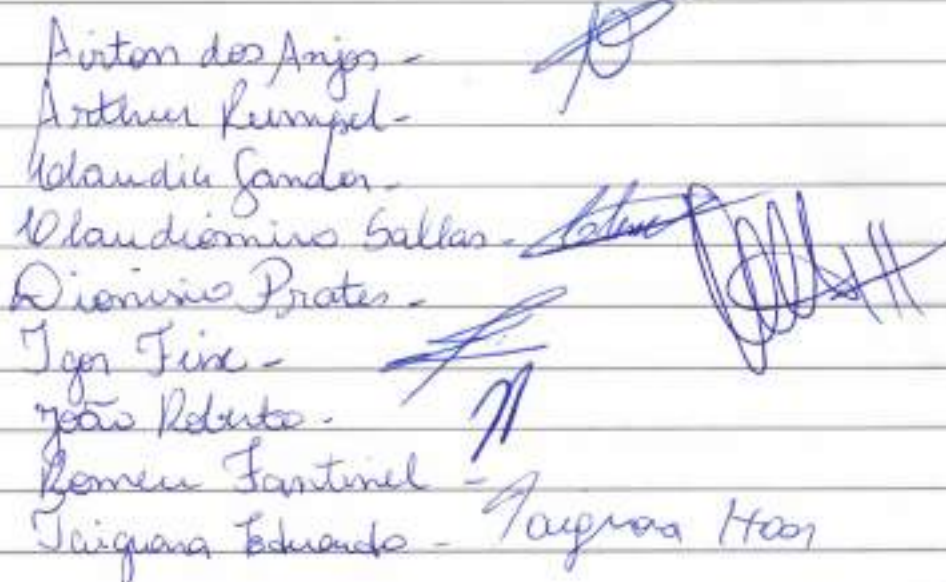 Airton dos Anjos -
Arthur Rumpel -
Claudia Sandor -
Claudiomiro Sallas -
Dionisio Prates -
Igor Finx -
João Roberto -
Romeu Fantinel -
Taiguara Eduardo - Taiguara Haas